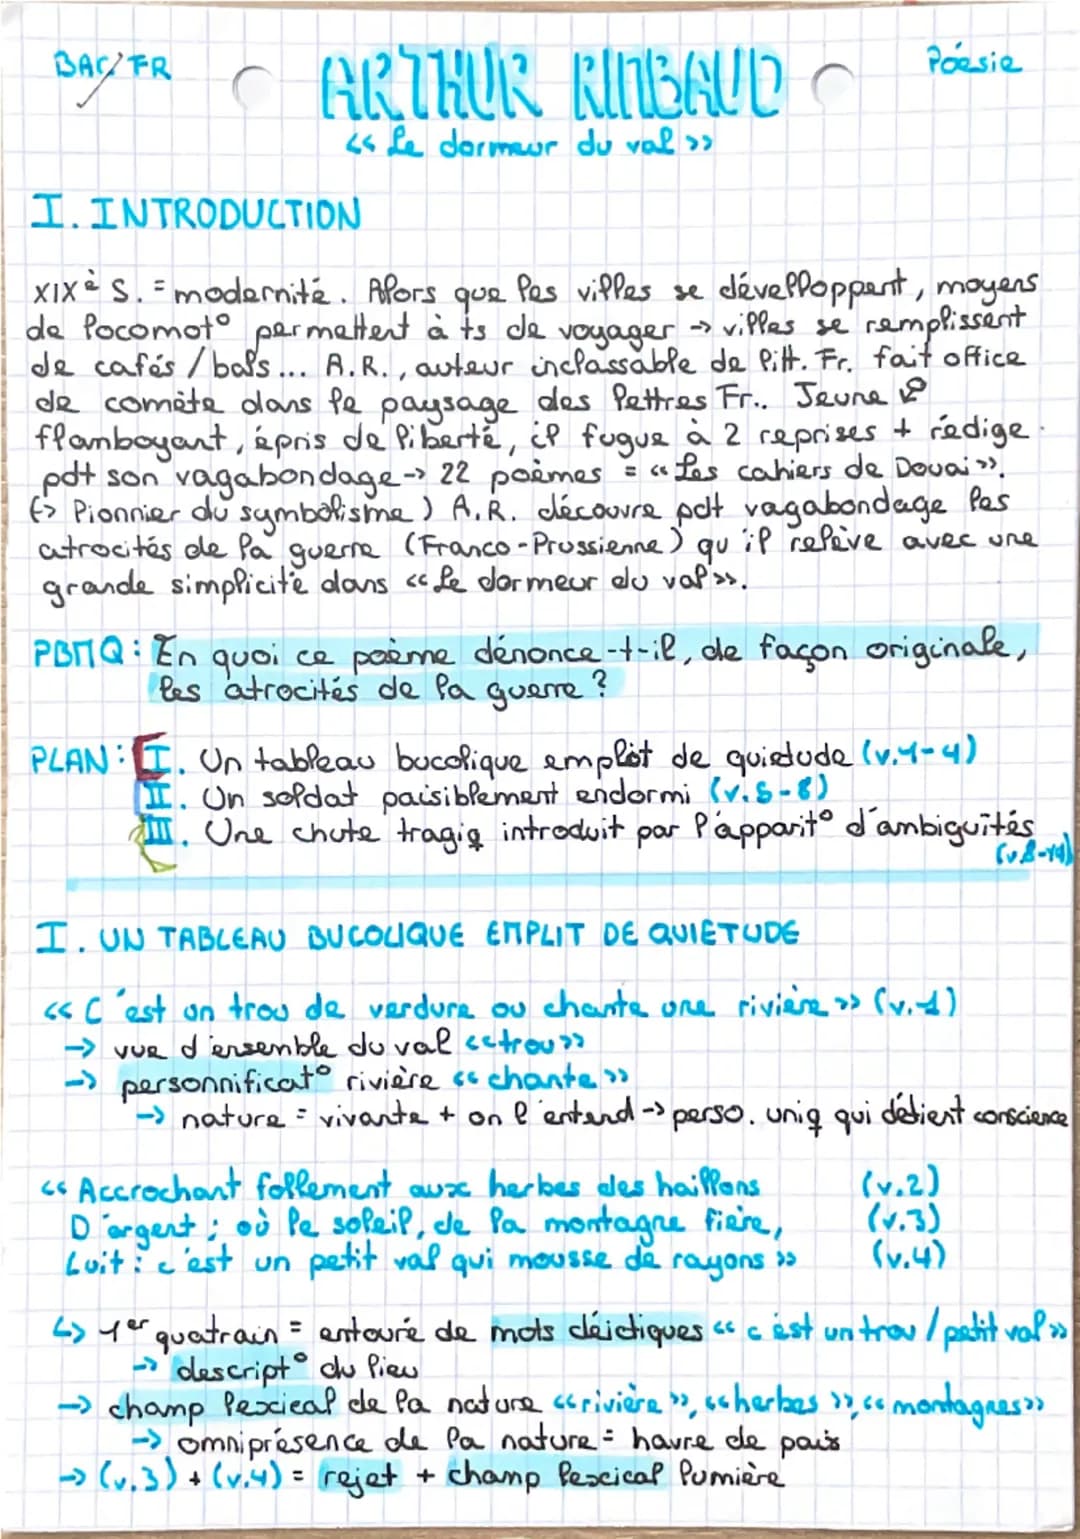 BAC FR
ARTHUR RIMBAUD
Poésie
<< Le dormeur du val >>
I. INTRODUCTION
XIXè S. = modernité. Alors que les villes se dévelloppent, moyens
de locomot° permettent à ts de voyager -> villes se remplissent
de cafés / bals... A.R., auteur inclassable de litt. Fr. fait office
de comète dans le paysage des lettres Fr.. Jeune
flamboyant, épris de liberté, il fugue à 2 reprises + rédige
pdt son vagabondage -> 22 poèmes = << Les cahiers de Douai >>.
(-> Pionnier du symbolisme) A.R. découvre pdt vagabondage les
atrocités de la guerre (Franco-Prussienne) qu'il relève avec une
grande simplicité dans << Le dormeur du val >>.
PBMQ : En quoi ce poème dénonce-t-il, de façon originale,
les atrocités de la guerre ?
PLAN : I. Un tableau bucolique emplit de quiétude (v.1-4)
II. Un soldat paisiblement endormi (v.5-8)
III. Une chute tragiq introduit par l'apparit° d'ambiguïtés
(v.8-14)
I. UN TABLEAU BUCOLIQUE EMPLIT DE QUIETUDE
<< C'est un trou de verdure ou chante une rivière >> (v.1)
-> vue d'ensemble du val << trou >>
-> personnificat° rivière << chante >>
-> nature = vivante + on l'entend -> perso. uniq qui détient conscience
<< Accrochant follement aux herbes des haillons (v.2)
D'argent ; où le soleil, de la montagne fière, (v.3)
Luit : c'est un petit val qui mousse de rayons >> (v.4)
↳ 1er quatrain = entouré de mots déictiques << c'est un trou / petit val >>
-> descript° du lieu
-> champ lexical de la nature << rivière >>, << herbes >>, << montagnes >>
-> omniprésence de la nature = havre de paix
-> (v.3) + (v.4) = rejet + champ lexical lumière